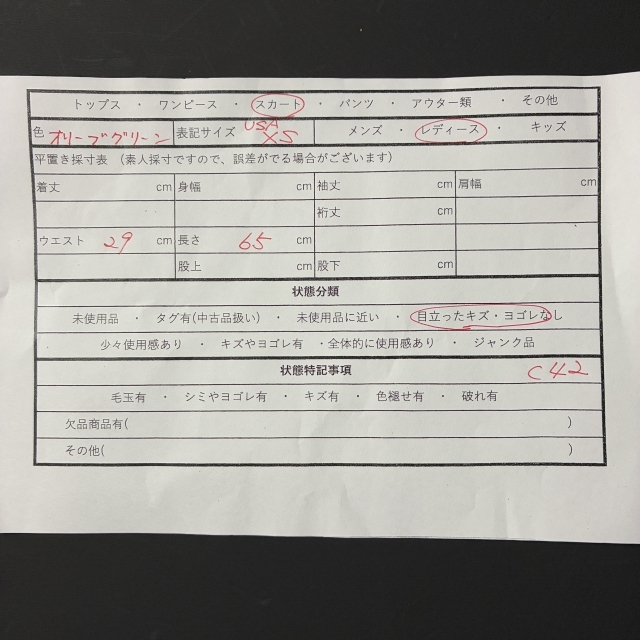 トップス ・ ワンピース ・ スカート ・ パンツ ・ アウター類 ・ その他
色 オリーブグリーン 表記サイズ USA XS メンズ ・ レディース ・ キッズ
平置き採寸表 (素人採寸ですので、誤差がでる場合がございます)
着丈 cm 身幅 cm 袖丈 cm 肩幅 cm
裄丈 cm
ウエスト 29 cm 長さ 65 cm
股上 cm 股下 cm
状態分類
未使用品 ・ タグ有(中古品扱い) ・ 未使用品に近い ・ 目立ったキズ・ヨゴレなし
少々使用感あり ・ キズやヨゴレ有 ・全体的に使用感あり ・ ジャンク品
状態特記事項 C42
毛玉有 ・ シミやヨゴレ有 ・ キズ有 ・ 色褪せ有 ・ 破れ有
欠品商品有( )
その他( )